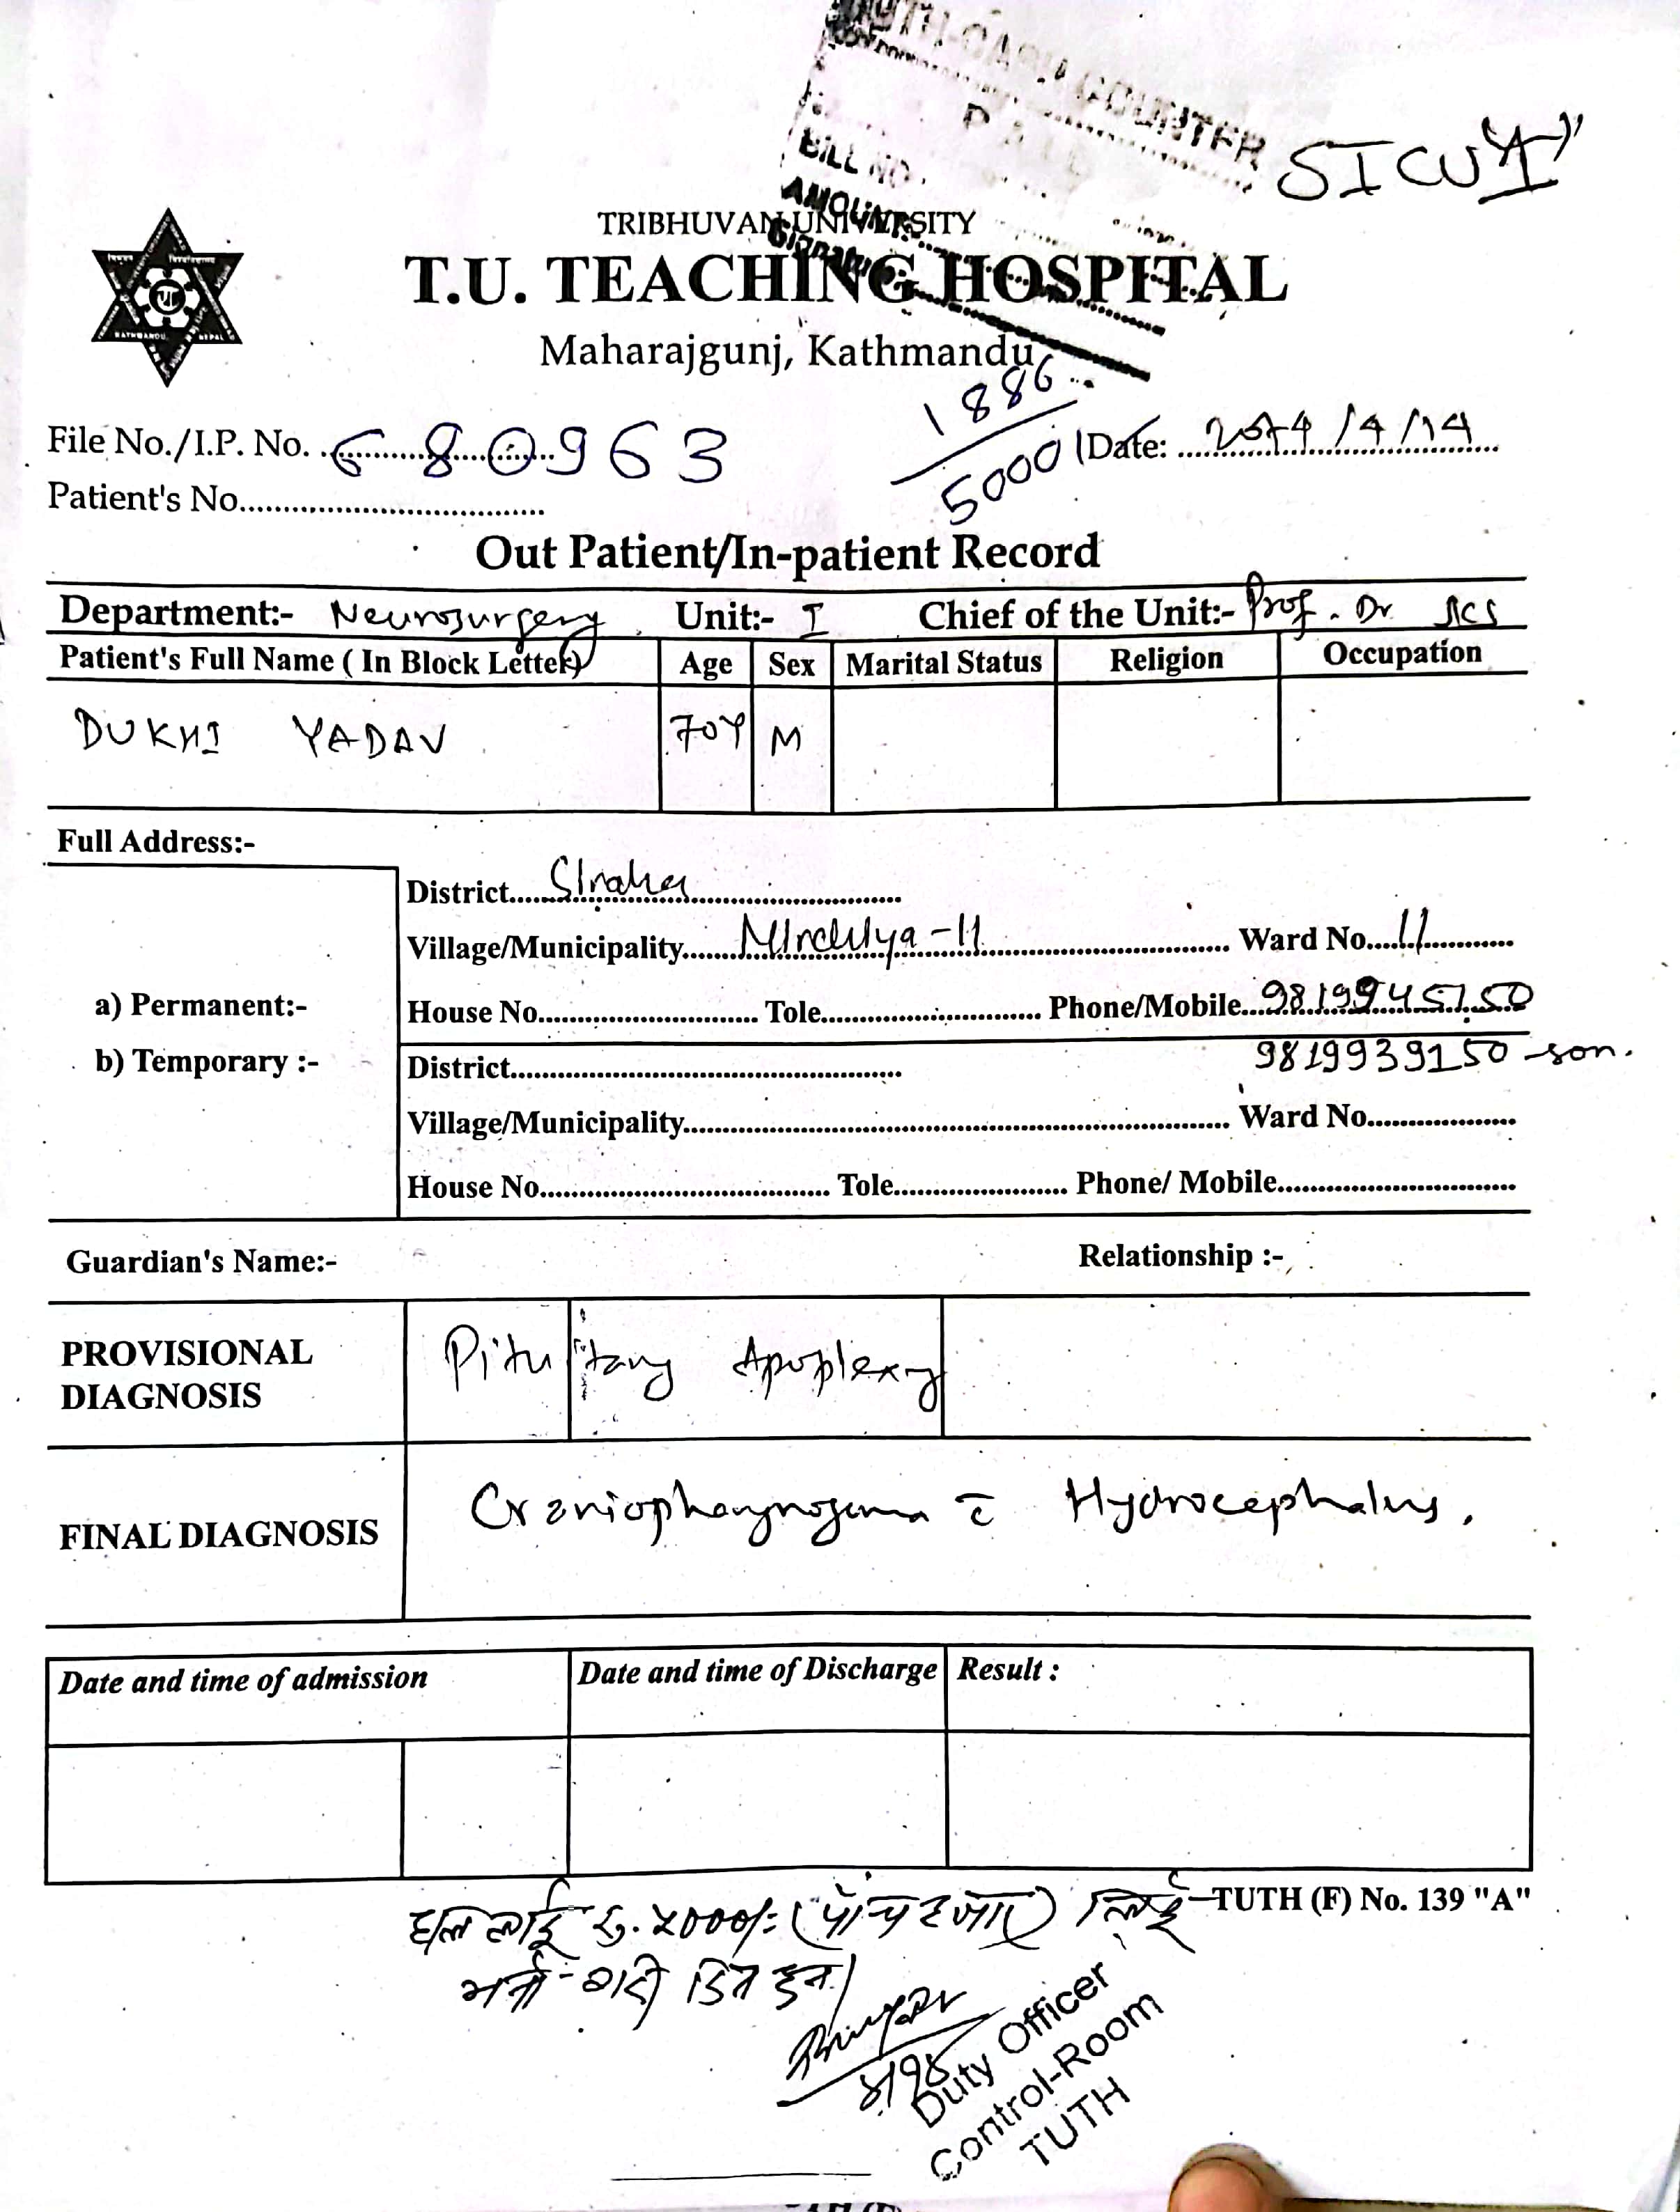 CASH COUNTER
PAID
BILL NO.
AMOUNT
Signature
SICU "I"
TRIBHUVAN UNIVERSITY
T.U. TEACHING HOSPITAL
Maharajgunj, Kathmandu
1886
5000
File No./I.P. No. 680963
Date: 2074/4/14
Patient's No.
Out Patient/In-patient Record
Department:- Neurosurgery Unit:- I Chief of the Unit:- Prof. Dr.
Patient's Full Name ( In Block Letter) Age Sex Marital Status Religion Occupation
DUKHI YADAV 70Y M
Full Address:-
District Siraha
Village/Municipality Mirchiya-11 Ward No. 11
a) Permanent:-
House No. Tole Phone/Mobile 9819945150
b) Temporary :-
District 9819939150 -son.
Village/Municipality Ward No.
House No. Tole Phone/ Mobile
Guardian's Name:- Relationship :-
PROVISIONAL DIAGNOSIS Pituitary Apoplexy
FINAL DIAGNOSIS Craniopharyngioma c̄ Hydrocephalus.
Date and time of admission Date and time of Discharge Result :
TUTH (F) No. 139 "A"
हाल लाई रु. ५०००/- (पाँच हजार) लिई
भर्ना
Duty Officer
Control-Room
TUTH